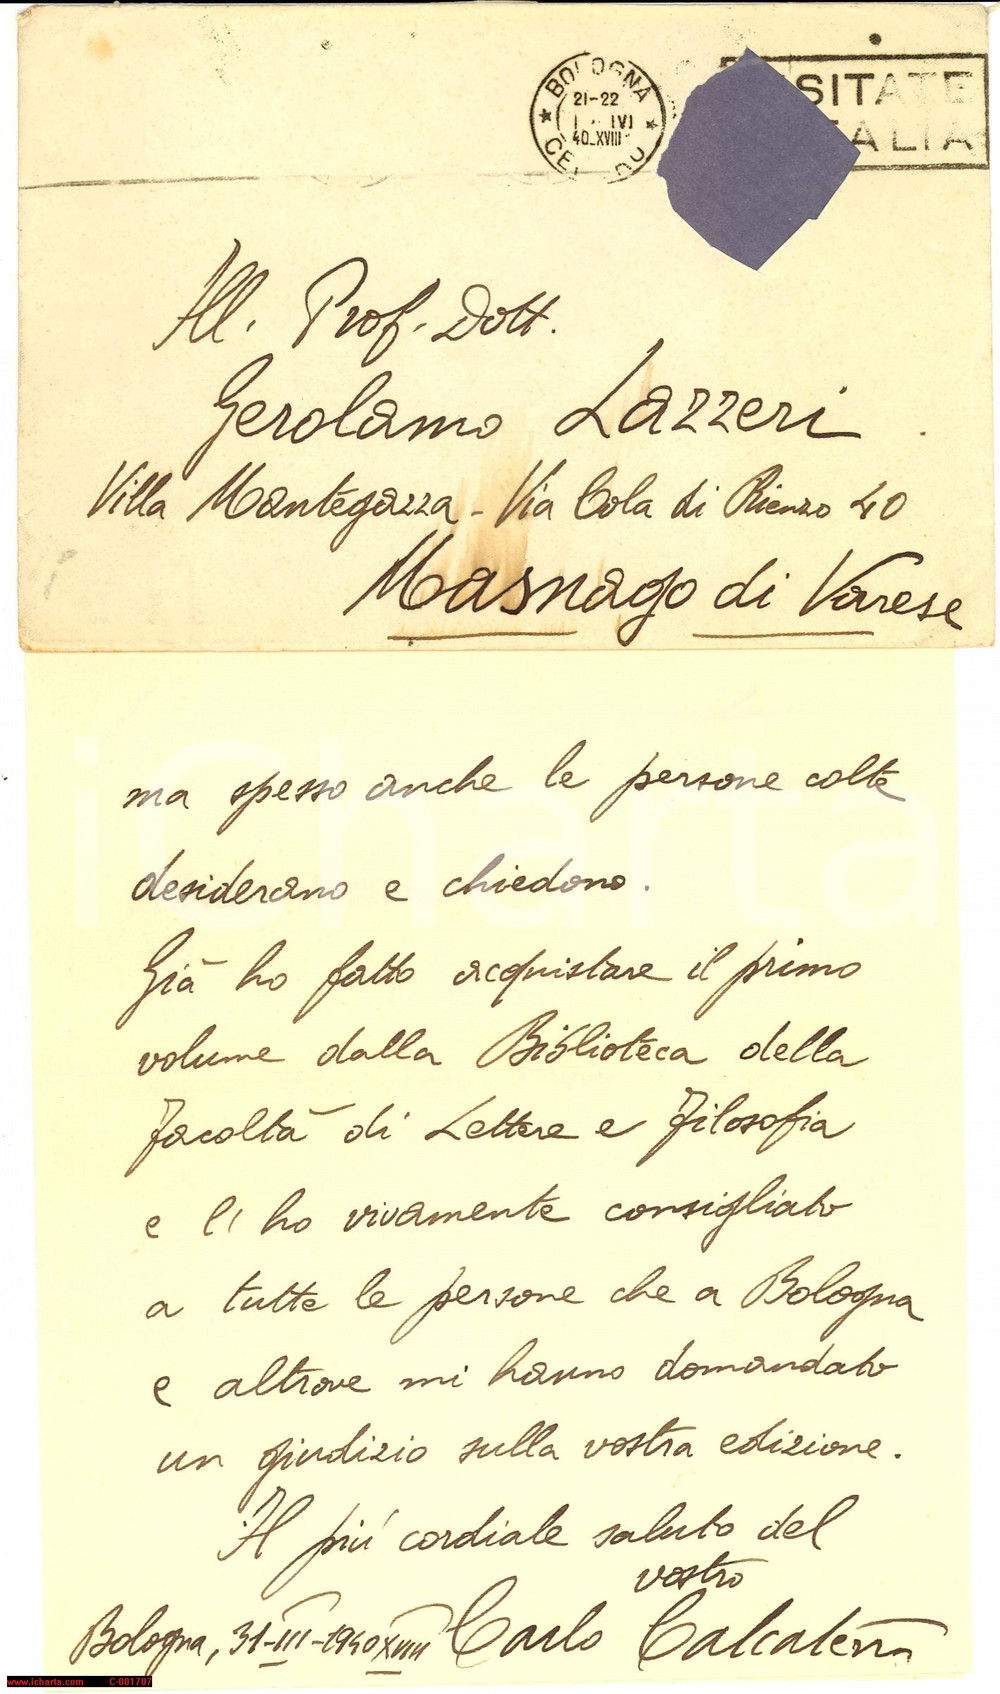 BOLOGNA
21-22
1 · IV
40.XVIII
SITATE
ALIA
All. Prof. Dott.
Gerolamo Lazzeri
Villa Mantegazza - Via Cola di Rienzo 40
Masnago di Varese
ma spesso anche le persone colte
desiderano e chiedono.
Già ho fatto acquistare il primo
volume dalla Biblioteca della
Facoltà di Lettere e Filosofia
e l'ho vivamente consigliato
a tutte le persone che a Bologna
e altrove mi hanno domandato
un giudizio sulla vostra edizione.
Il più cordiale saluto del
vostro
Bologna, 31-III-1940 XVIII Carlo Calcaterra
www.icharta.com C-001707
iCharta